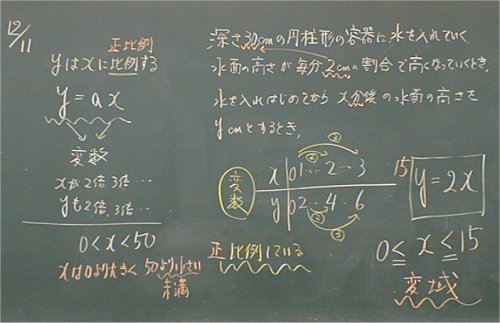 12/11
正比例
yはxに比例する
y=ax
変数
xが2倍、3倍…
yも2倍、3倍…
0<x<50
xは0より大きく 50より小さい
未満
深さ30cmの円柱形の容器に水を入れていく。
水面の高さが毎分2cmの割合で高くなっていくとき、
水を入れはじめてから x分後の水面の高さを
ycmとするとき、
変数
x 0 1 … 2 … 3 15
y 0 2 … 4 … 6
② ② ③
y=2x
正比例している
0≦x≦15
変域